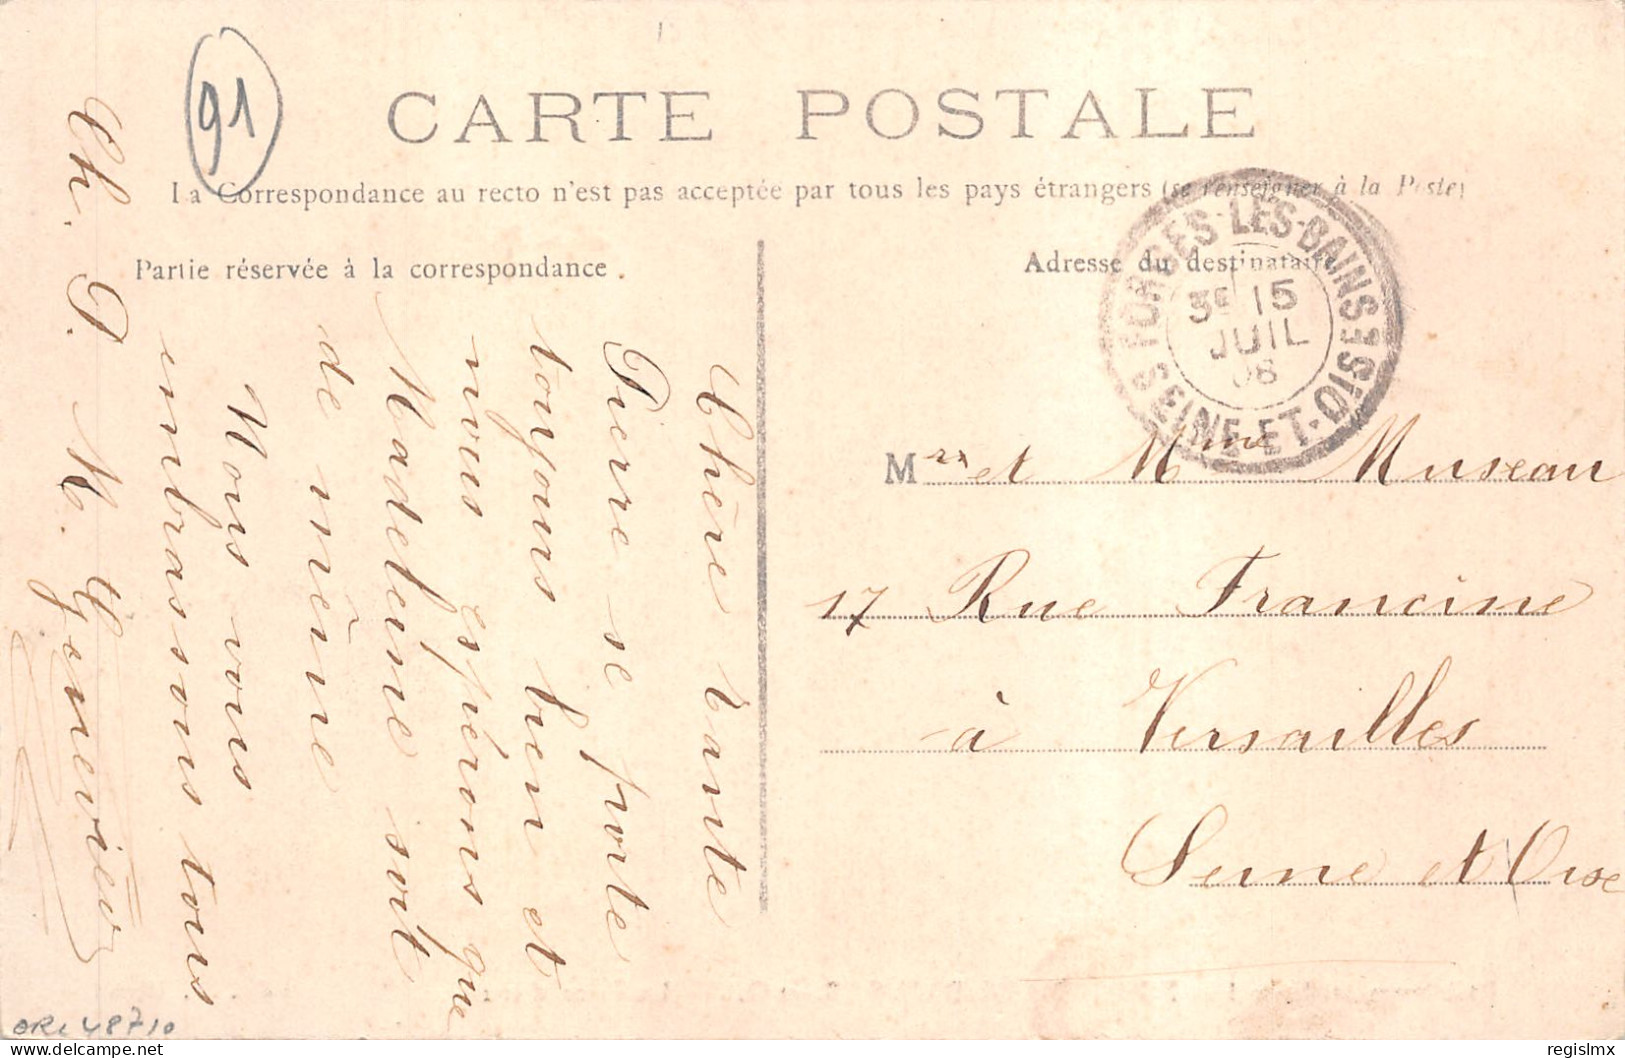 91
CARTE POSTALE
La Correspondance au recto n'est pas acceptée par tous les pays étrangers (se renseigner à la Poste)
Partie réservée à la correspondance.
Adresse du destinataire
FORGES-LES-BAINS
3E 15
JUIL
08
SEINE-ET-OISE
Chère tante
Pierre se porte
toujours bien et
nous espérons que
Madeleine soit
de même
Nous vous
embrassons tous
Ch. P. M. Genevièv
Mrs et Mme Museau
17 Rue Francine
à Versailles
Seine et Oise
48710
regislmx